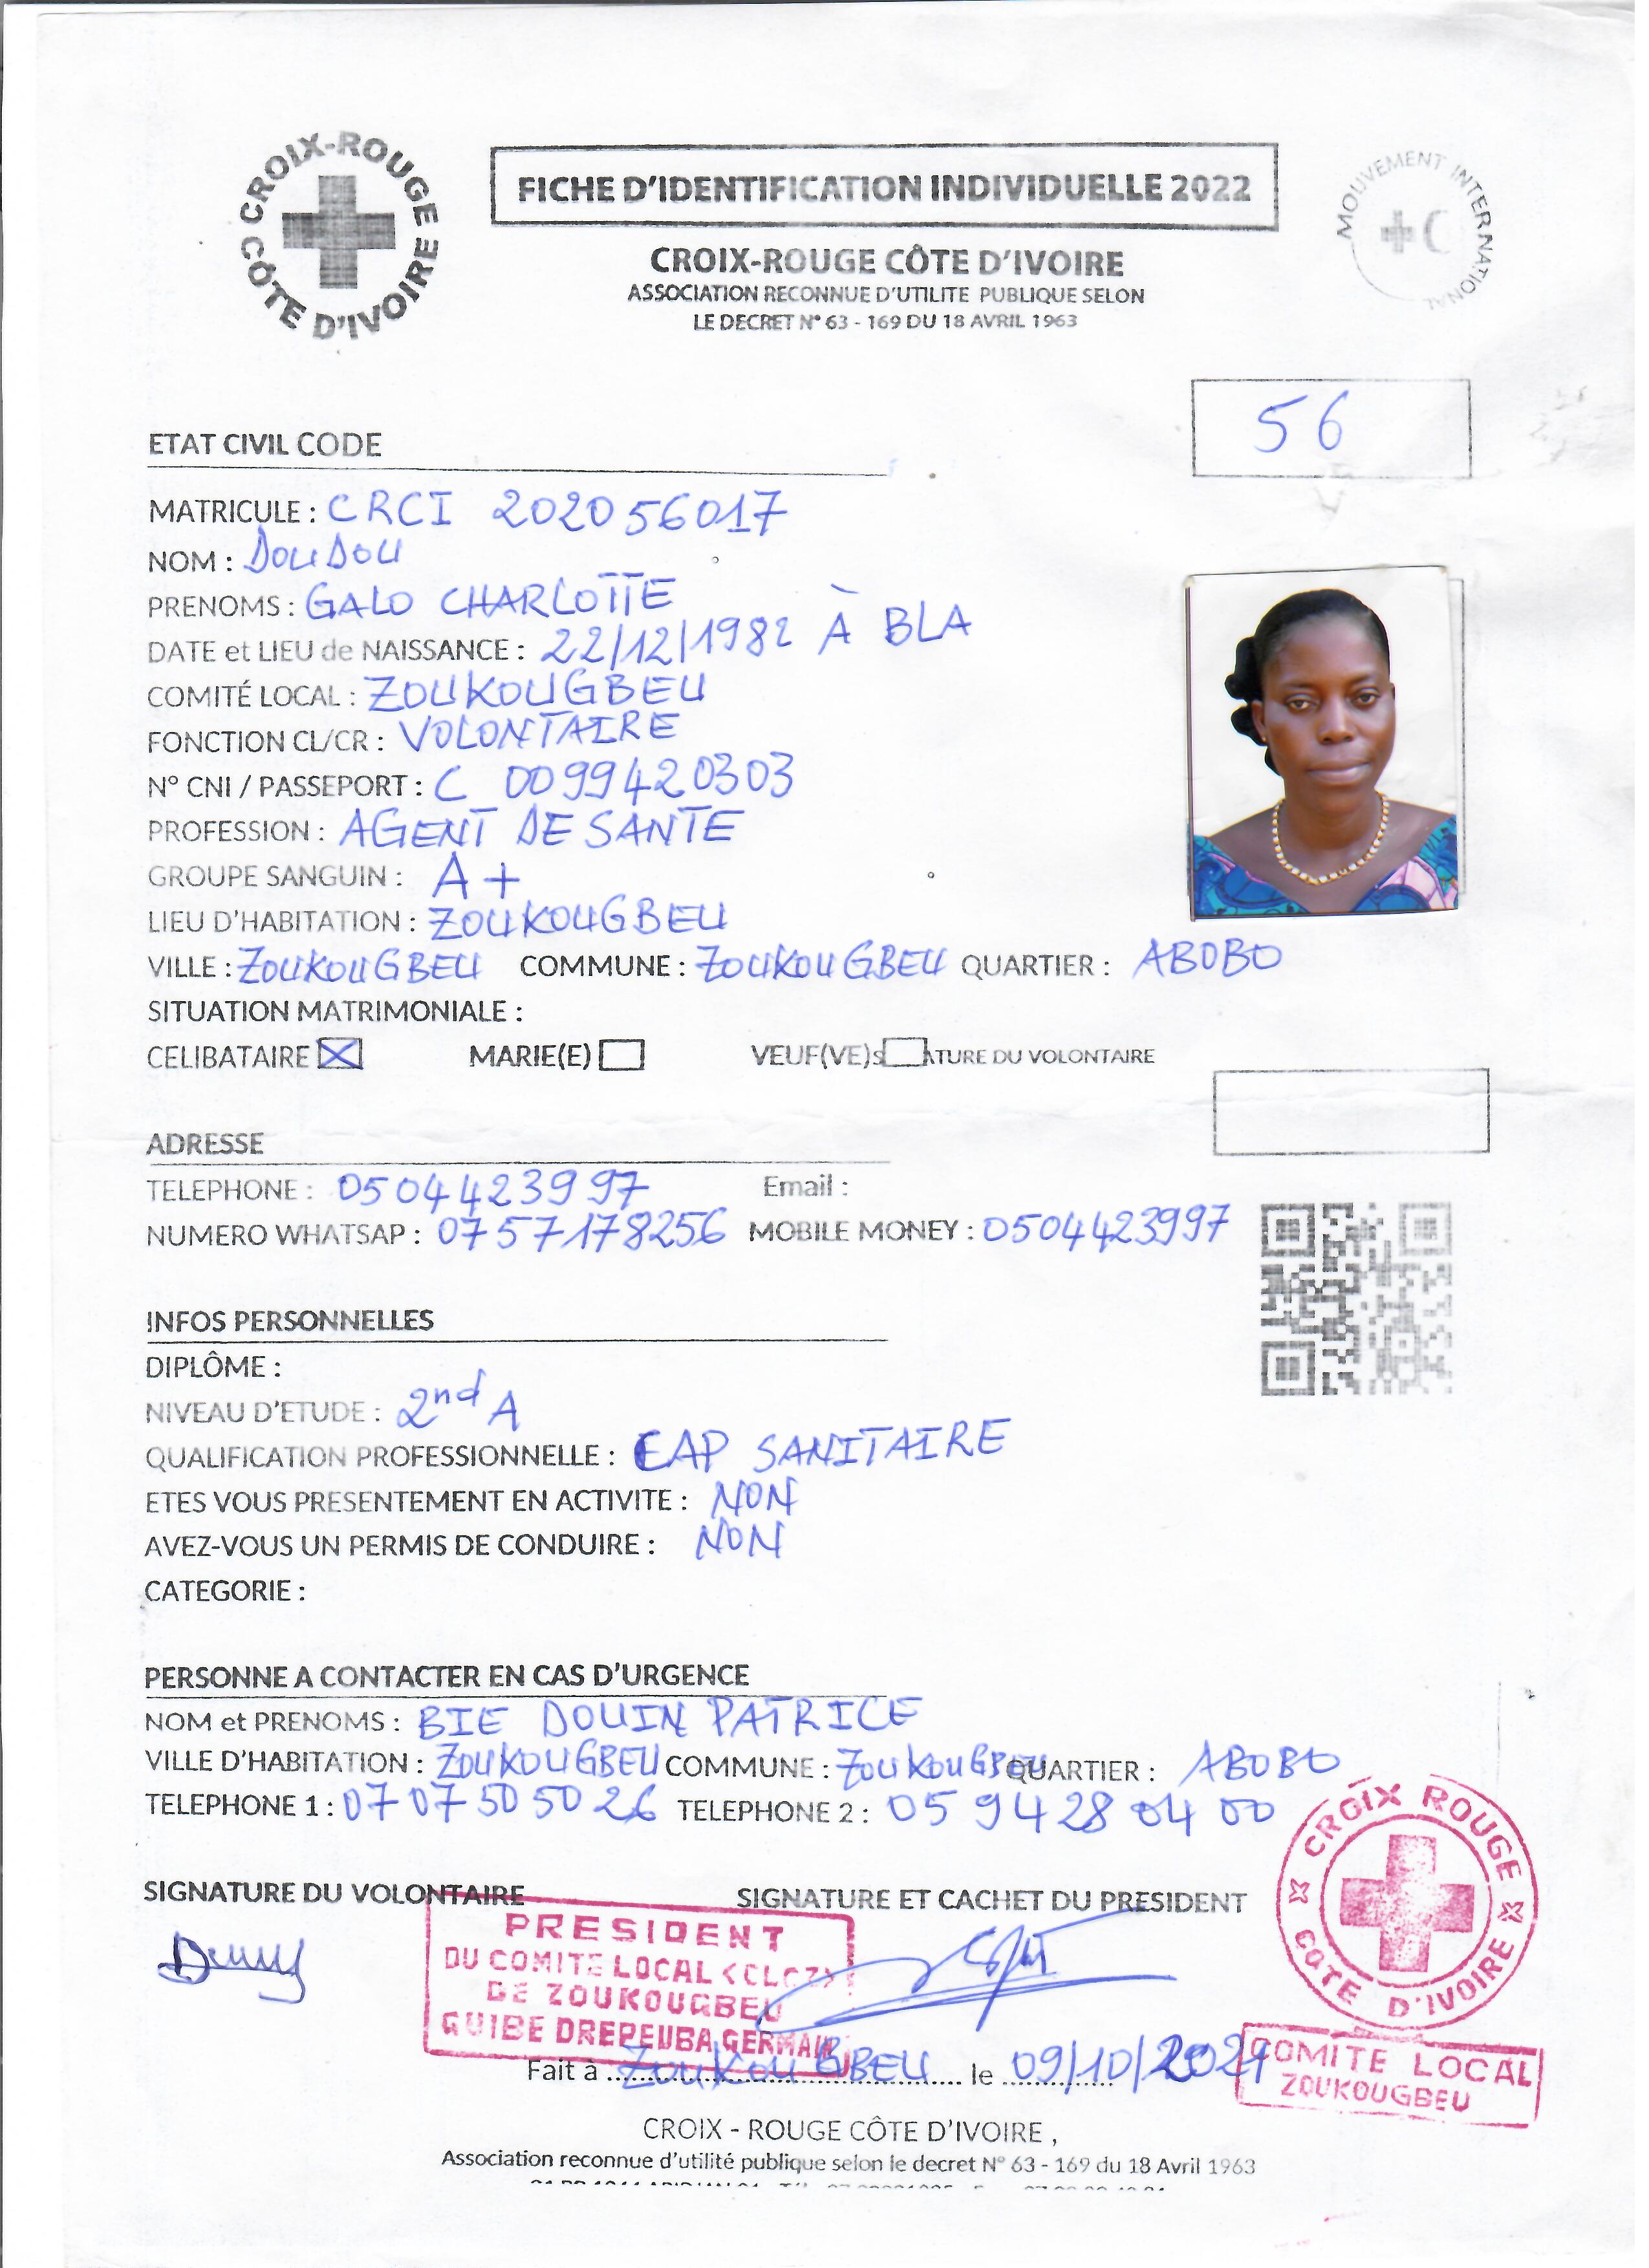 CROIX-ROUGE CÔTE D'IVOIRE
FICHE D'IDENTIFICATION INDIVIDUELLE 2022
MOUVEMENT INTERNATIONAL
CROIX-ROUGE CÔTE D'IVOIRE
ASSOCIATION RECONNUE D'UTILITE PUBLIQUE SELON
LE DECRET N° 63 - 169 DU 18 AVRIL 1963
56
ETAT CIVIL CODE
MATRICULE : CRCI 202056017
NOM : DOUDOU
PRENOMS : GALO CHARLOTTE
DATE et LIEU de NAISSANCE : 22/12/1982 À BLA
COMITÉ LOCAL : ZOUKOUGBEU
FONCTION CL/CR : VOLONTAIRE
N° CNI / PASSEPORT : C 0099420303
PROFESSION : AGENT DE SANTE
GROUPE SANGUIN : A+
LIEU D'HABITATION : ZOUKOUGBEU
VILLE : ZOUKOUGBEU COMMUNE : ZOUKOUGBEU QUARTIER : ABOBO
SITUATION MATRIMONIALE :
CELIBATAIRE MARIE(E) VEUF(VE)S ATURE DU VOLONTAIRE
ADRESSE
TELEPHONE : 0504423997 Email :
NUMERO WHATSAP : 0757178256 MOBILE MONEY : 0504423997
INFOS PERSONNELLES
DIPLÔME :
NIVEAU D'ETUDE : 2nd A
QUALIFICATION PROFESSIONNELLE : CAP SANITAIRE
ETES VOUS PRESENTEMENT EN ACTIVITE : NON
AVEZ-VOUS UN PERMIS DE CONDUIRE : NON
CATEGORIE :
PERSONNE A CONTACTER EN CAS D'URGENCE
NOM et PRENOMS : BIE DOUIN PATRICE
VILLE D'HABITATION : ZOUKOUGBEU COMMUNE : ZOUKOUGBEU QUARTIER : ABOBO
TELEPHONE 1 : 07 07 50 50 26 TELEPHONE 2 : 05 94 28 04 00
SIGNATURE DU VOLONTAIRE SIGNATURE ET CACHET DU PRESIDENT
PRESIDENT
DU COMITE LOCAL <CLCZ>
DE ZOUKOUGBEU
GUIBE DREPEUBA GERMAIN
CROIX ROUGE CÔTE D'IVOIRE
COMITE LOCAL
ZOUKOUGBEU
Fait à ZOUKOUGBEU le 09/10/2021
CROIX - ROUGE CÔTE D'IVOIRE ,
Association reconnue d'utilité publique selon le decret N° 63 - 169 du 18 Avril 1963